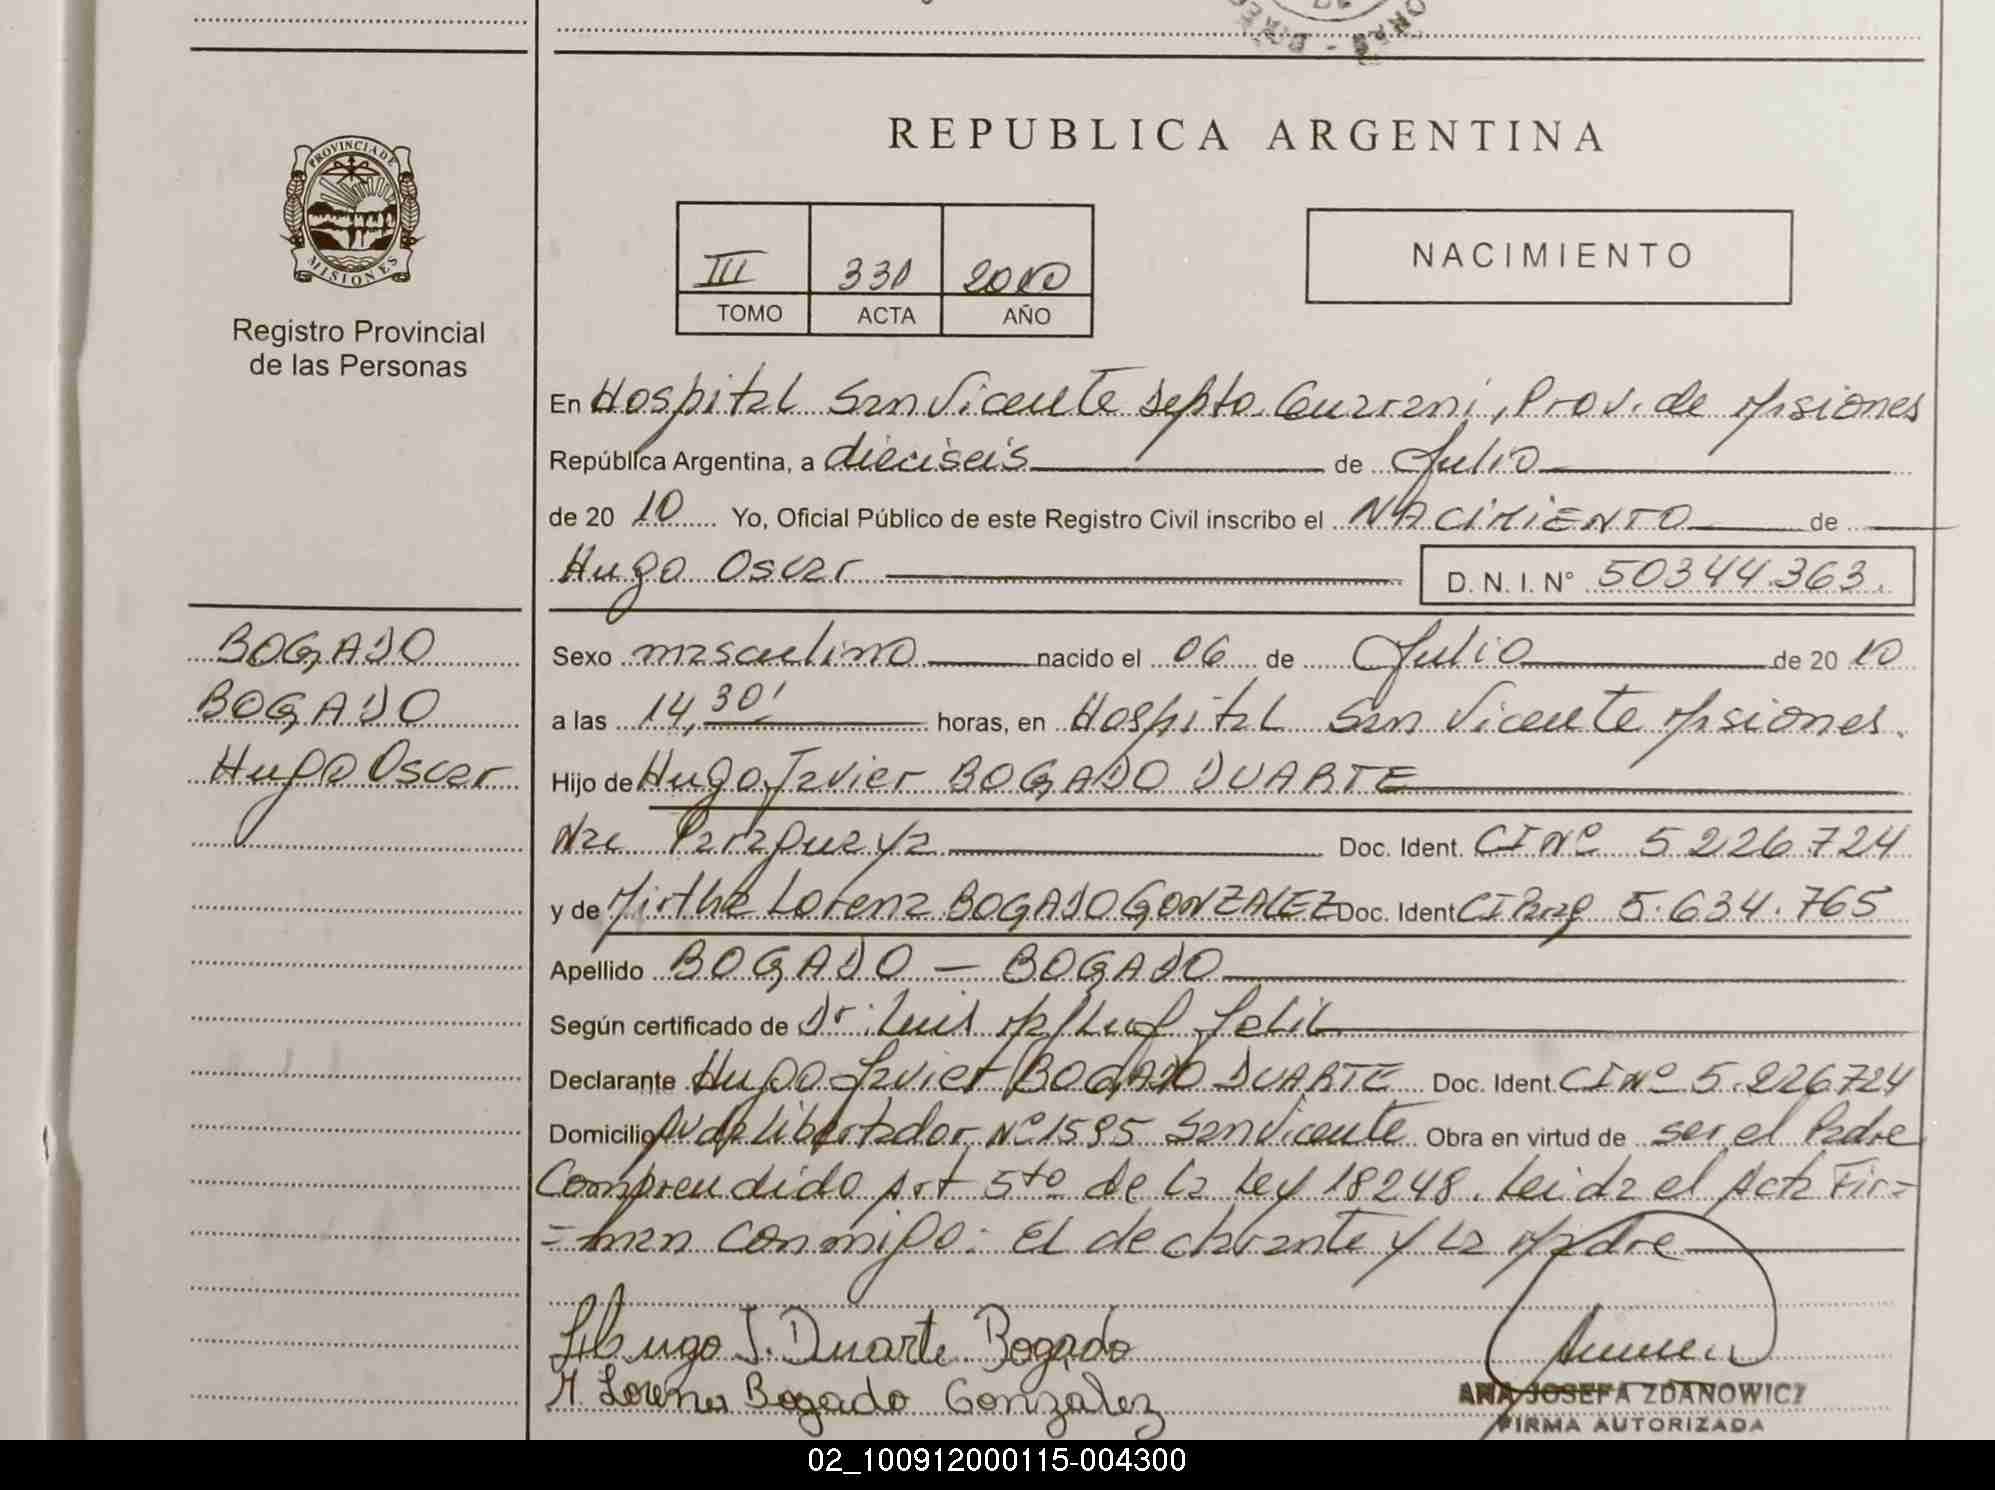 PROVINCIA DE
MISIONES
Registro Provincial
de las Personas
REPUBLICA ARGENTINA
III 331 2010
TOMO ACTA AÑO
NACIMIENTO
En Hospital San Vicente Depto. Guarani, Prov. de Misiones
República Argentina, a dieciseis de Julio
de 20 10 Yo, Oficial Público de este Registro Civil inscribo el NACIMIENTO de
Hugo Oscar D. N. I. N° 50344.363.
BOGADO
BOGADO
Hugo Oscar
Sexo masculino nacido el 06 de Julio de 20 10
a las 14,30' horas, en Hospital San Vicente Misiones.
Hijo de Hugo Javier BOGADO DUARTE
Nac Paraguaya Doc. Ident. CI Nº 5226.724
y de Mirtha Lorena BOGADO GONZALEZ Doc. Ident CI Parag 5.634.765
Apellido BOGADO — BOGADO
Según certificado de Dr: Luis
Declarante Hugo Javier BOGADO DUARTE Doc. Ident. CI Nº 5.226724
Domicilio Av del Libertador Nº 1595 San Vicente Obra en virtud de ser el Padre
Comprendido Art 5to de la Ley 18248. Leida el Acta Fir=
=man conmigo: El declarante y la Madre
Hugo J. Duarte Bogado
M. Lorena Bogado Gonzalez
ANA JOSEFA ZDANOWICZ
FIRMA AUTORIZADA
02_100912000115-004300